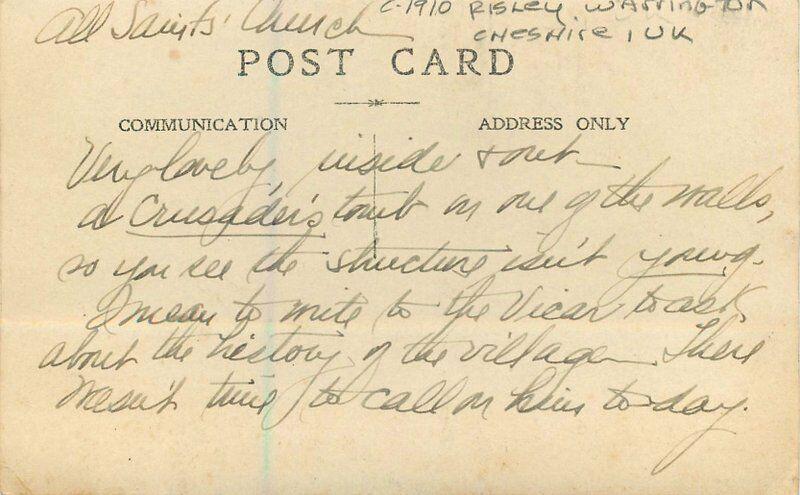 All Saints' Church
C-1910 RISLEY, WARRINGTON
CHESHIRE, UK
POST CARD
COMMUNICATION
ADDRESS ONLY
Very lovely inside & out—
a Crusader's tomb in one of the walls,
so you see the structure isn't young.
I mean to write to the Vicar to ask
about the history of the village. There
wasn't time to call on him to-day.